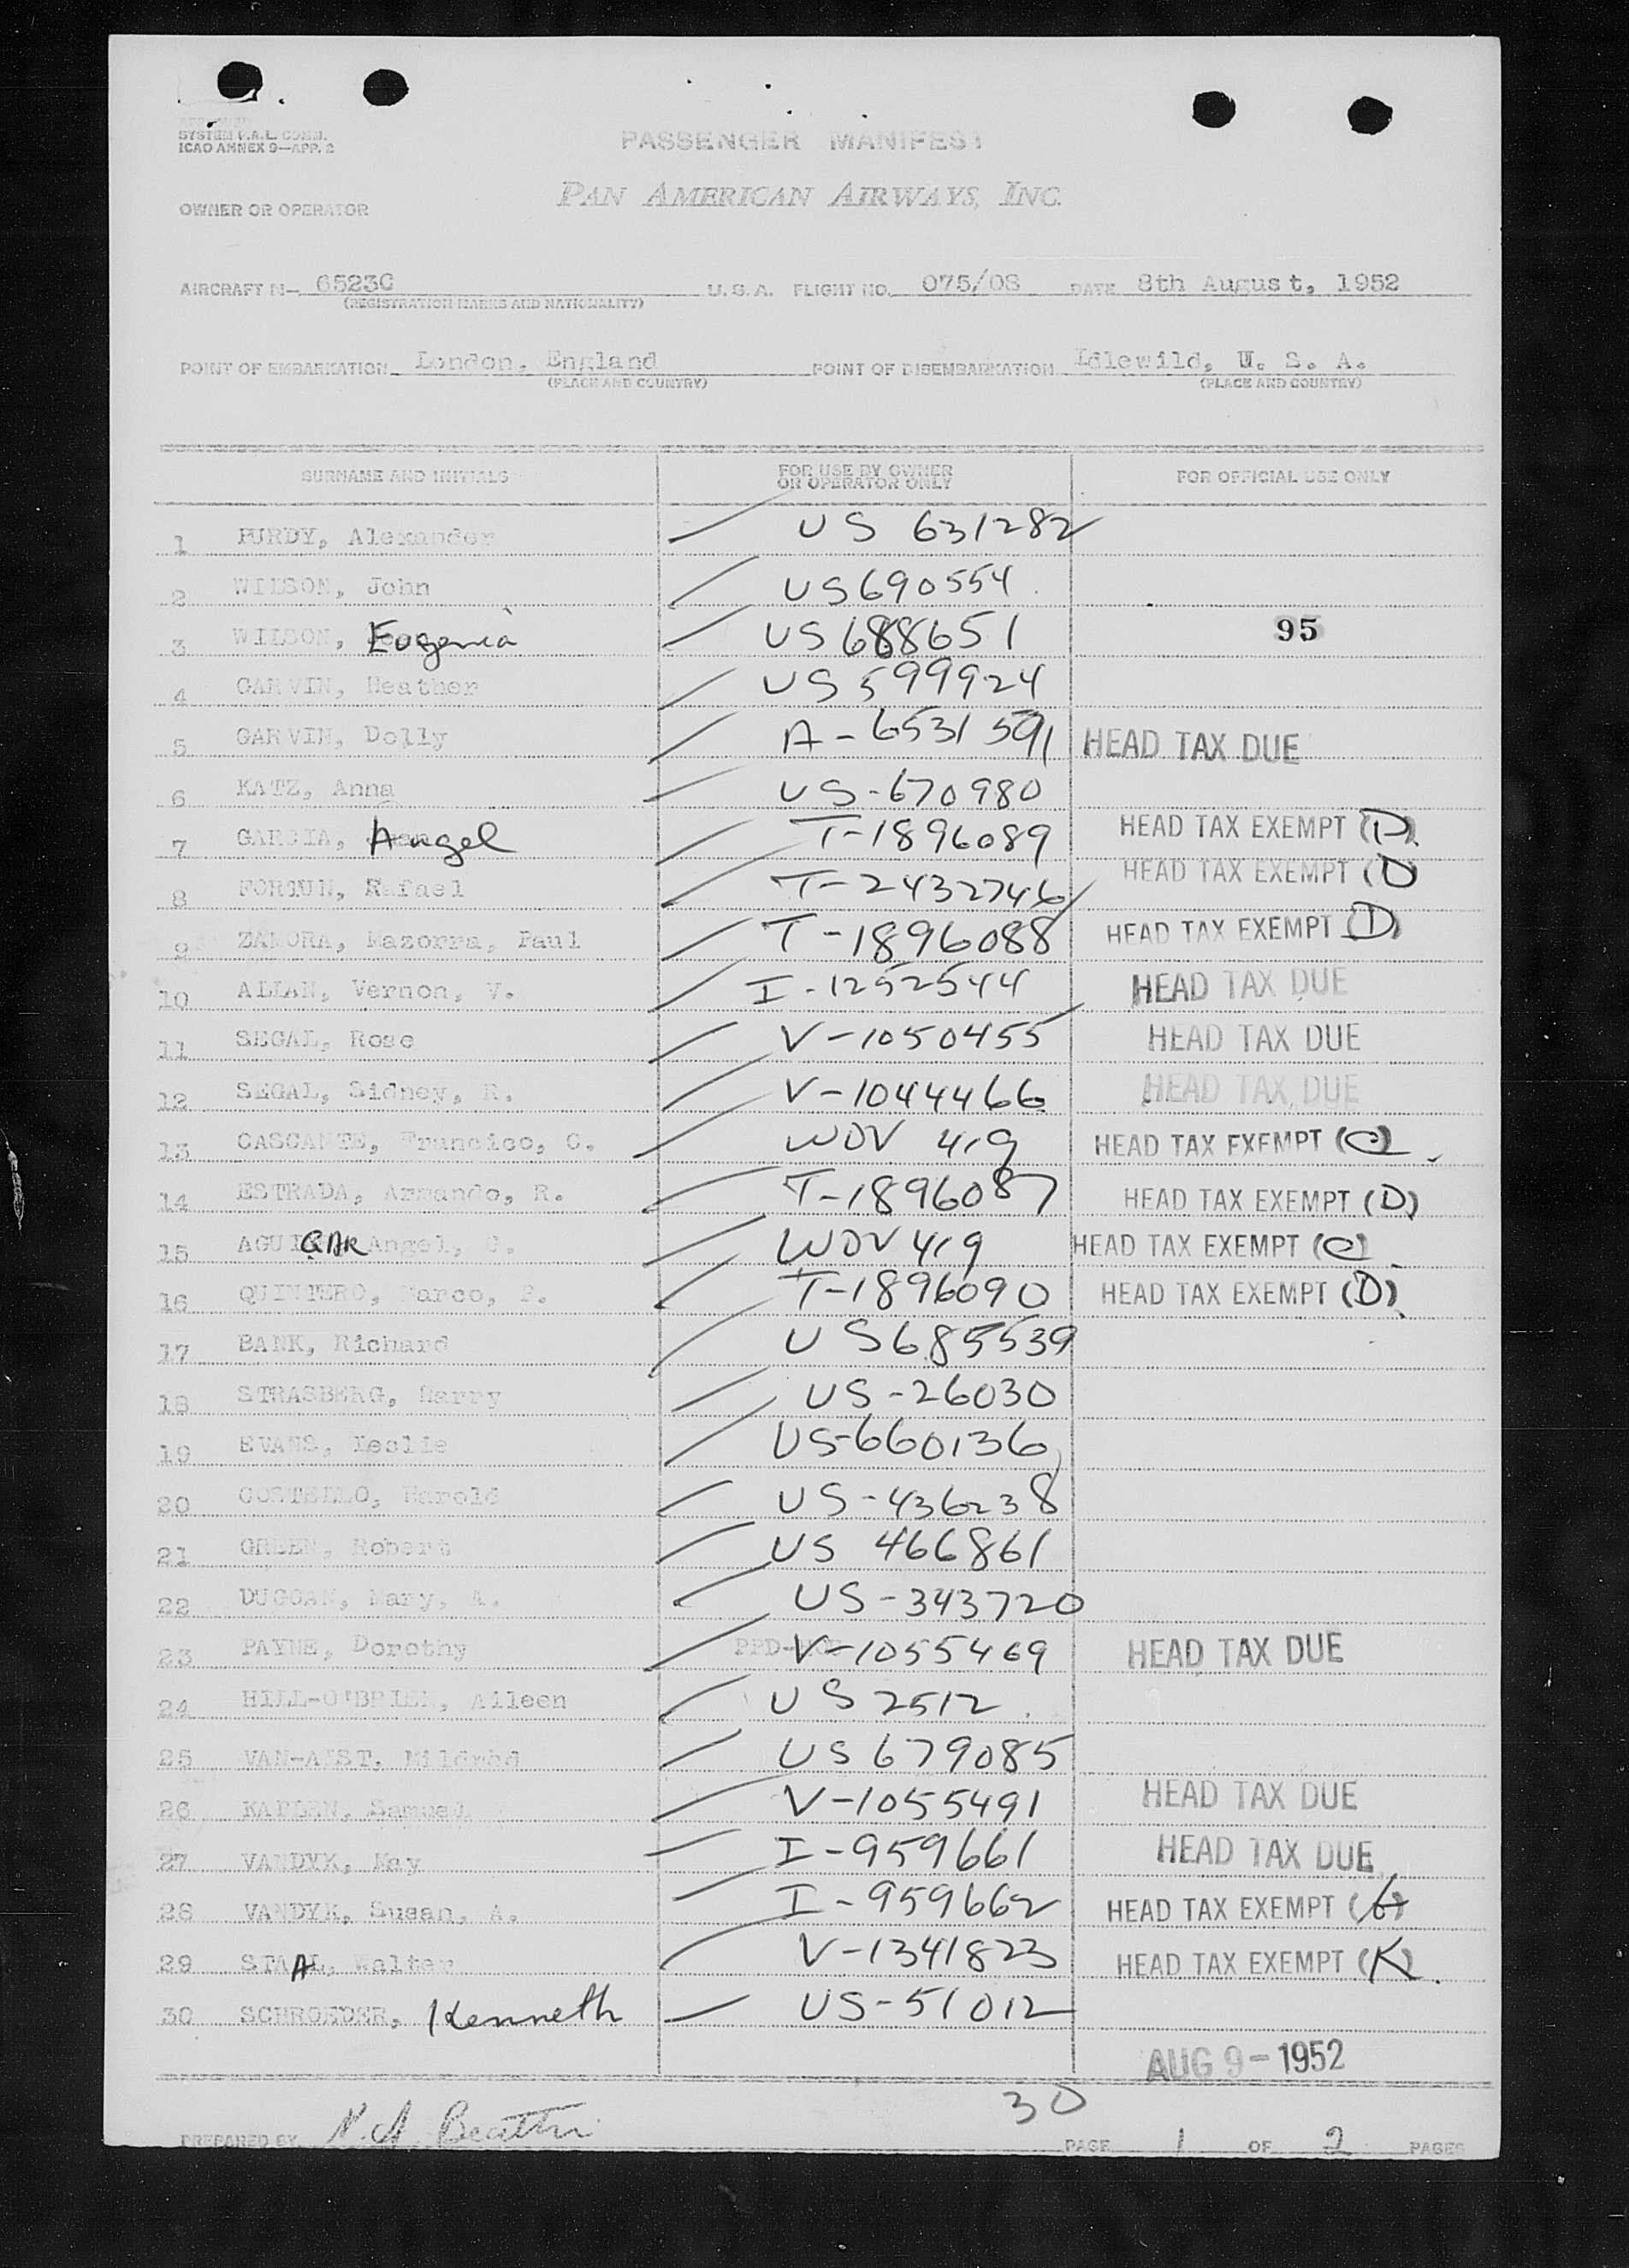 SYSTEM F.A.L. COMM.
ICAO ANNEX 9—APP. 2
PASSENGER MANIFEST
OWNER OR OPERATOR PAN AMERICAN AIRWAYS, INC.
AIRCRAFT N— 6523C U.S.A. FLIGHT NO. 075/08 DATE 8th August, 1952
(REGISTRATION MARKS AND NATIONALITY)
POINT OF EMBARKATION London, England POINT OF DISEMBARKATION Idlewild, U. S. A.
(PLACE AND COUNTRY) (PLACE AND COUNTRY)
SURNAME AND INITIALS FOR USE BY OWNER OR OPERATOR ONLY FOR OFFICIAL USE ONLY
1 PURDY, Alexander US 631282
2 WILSON, John US 690554
3 WILSON, Eugenia US 688651 95
4 GARVIN, Heather US 599924
5 GARVIN, Dolly A-6531591 HEAD TAX DUE
6 KATZ, Anna US-670980
7 GARCIA, Angel T-1896089 HEAD TAX EXEMPT (D)
8 FORTUN, Rafael T-2432746 HEAD TAX EXEMPT (D)
9 ZAMORA, Mazorra, Paul T-1896088 HEAD TAX EXEMPT (D)
10 ALLAN, Vernon, V. I-1252544 HEAD TAX DUE
11 SEGAL, Rose V-1050455 HEAD TAX DUE
12 SEGAL, Sidney, R. V-1044466 HEAD TAX DUE
13 CASCANTE, Francico, C. WOV 419 HEAD TAX EXEMPT (C)
14 ESTRADA, Armando, R. T-1896087 HEAD TAX EXEMPT (D)
15 AGUIGAR Angel, C. WOV 419 HEAD TAX EXEMPT (C)
16 QUINTERO, Marco, P. T-1896090 HEAD TAX EXEMPT (D)
17 BANK, Richard US 685539
18 STRASBERG, Harry US-26030
19 EVANS, Leslie US-660136
20 COSTELLO, Harold US-436238
21 GREEN, Robert US 466861
22 DUGGAN, Mary, A. US-343720
23 PAYNE, Dorothy V-1055469 HEAD TAX DUE
24 HILL-O'BRIEN, Aileen US 2512
25 VAN-AUST, Mildred US 679085
26 Samuel V-1055491 HEAD TAX DUE
27 VANDYK, May I-959661 HEAD TAX DUE
28 VANDYK, Susan, A. I-959662 HEAD TAX EXEMPT
29 STAAL, Walter V-1341823 HEAD TAX EXEMPT (K)
30 SCHROEDER, Kenneth US-51012
AUG 9-1952
30
PREPARED BY N. A. Beattie PAGE 1 OF 2 PAGES